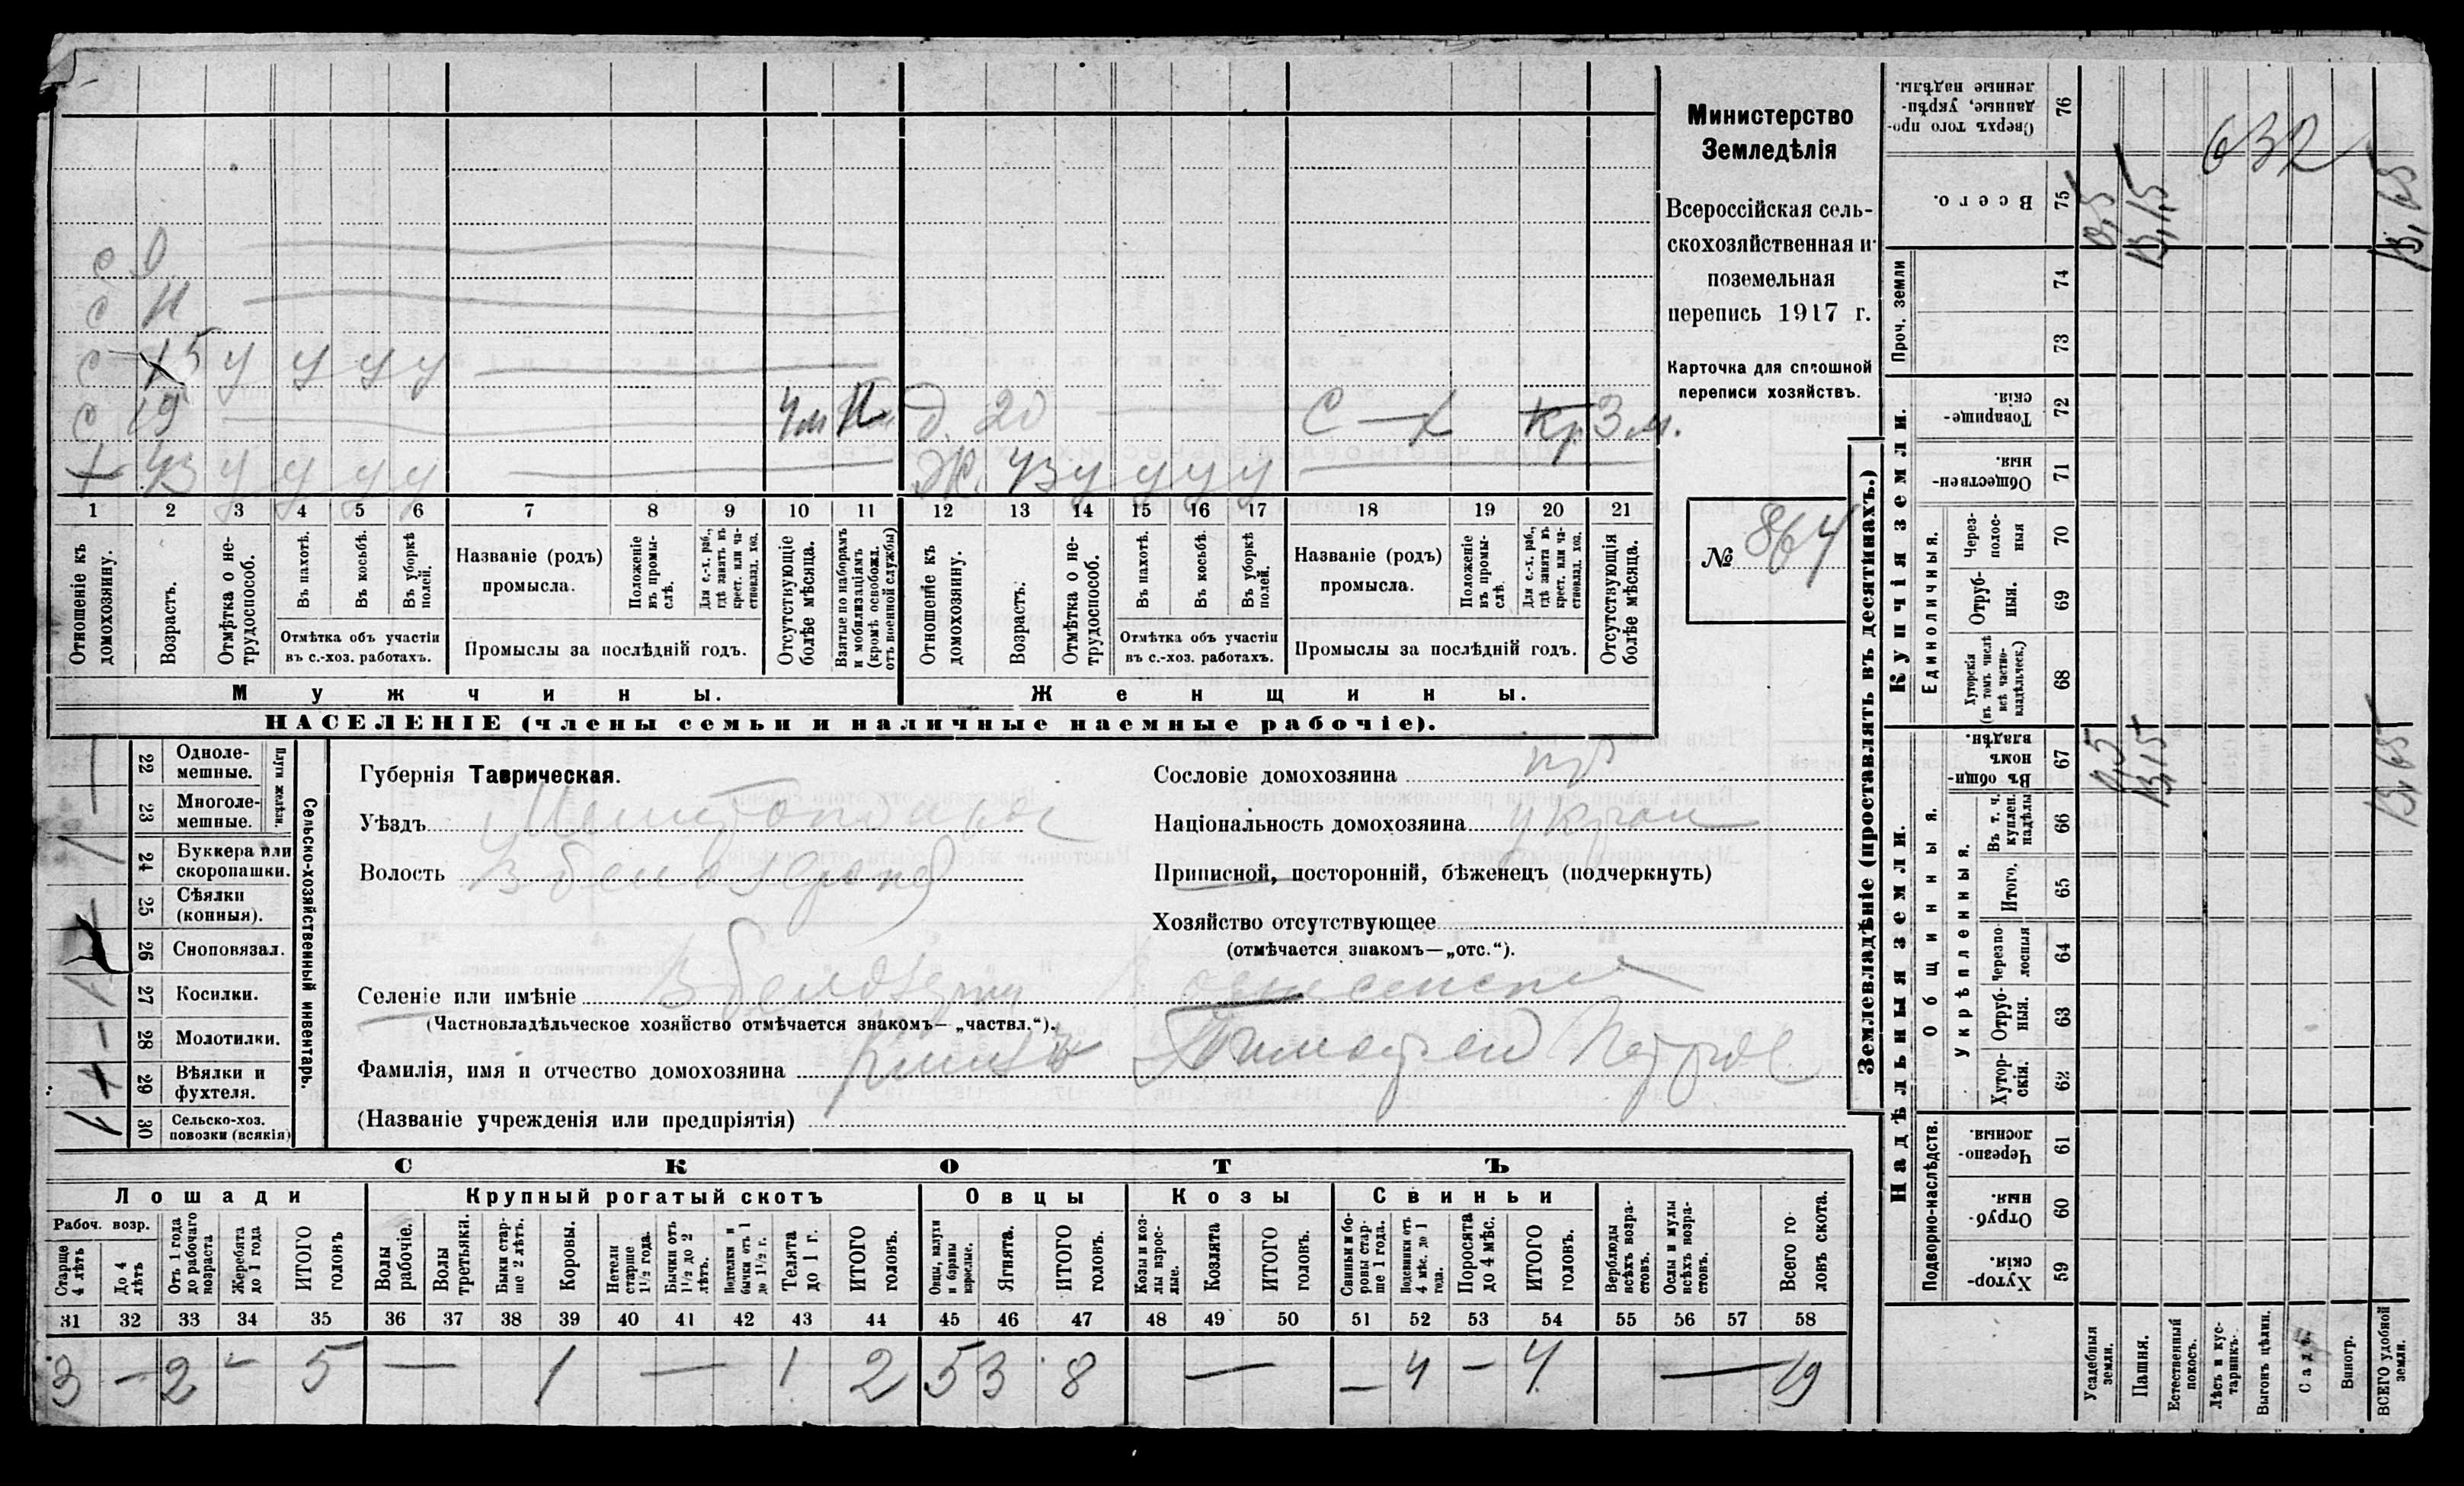 Министерство
Земледѣлія
Всероссійская сель-
скохозяйственная и
поземельная
перепись 1917 г.
Карточка для сплошной
переписи хозяйствъ.
№ 864
с
с 11
с 15 У У У У
с 19 4м
43 У У У У
д. 20 С — Х кр 3 м.
Ж. 43 У У У У
1 2 3 4 5 6 7 8 9 10 11 12 13 14 15 16 17 18 19 20 21
Отношеніе къ домохозяину.
Возрастъ.
Отмѣтка о не-трудоспособ.
Въ пахотѣ.
Въ косьбѣ.
Въ уборкѣ полей.
Отмѣтка объ участіи въ с.-хоз. работахъ.
Названіе (родъ) промысла.
Положеніе въ промы-слѣ.
Для с.-х. раб., гдѣ занятъ въ крест. или ча-стновлад. хоз.
Промыслы за послѣдній годъ.
Отсутствующіе болѣе мѣсяца.
Взятые по наборамъ и мобилизаціямъ (кромѣ освобожд. отъ военной службы)
Отношеніе къ домохозяину.
Возрастъ.
Отмѣтка о не-трудоспособ.
Въ пахотѣ.
Въ косьбѣ.
Въ уборкѣ полей.
Отмѣтка объ участіи въ с.-хоз. работахъ.
Названіе (родъ) промысла.
Положеніе въ промы-слѣ.
Для с.-х. раб., гдѣ занята въ крест. или ча-стновлад. хоз.
Промыслы за послѣдній годъ.
Отсутствующія болѣе мѣсяца.
Мужчины.
Женщины.
НАСЕЛЕНІЕ (члены семьи и наличные наемные рабочіе).
Сельско-хозяйственный инвентарь.
Плуги желѣзн.
22 Одноле-мешные.
23 Многоле-мешные.
24 Буккера или скоропашки. 1
25 Сѣялки (конныя).
26 Сноповязал.
27 Косилки. 1
28 Молотилки. —
29 Вѣялки и фухтеля.
30 Сельско-хоз. повозки (всякія) 1
Губернія Таврическая.
Уѣздъ Мелитопольс
Волость В Белозерка
Сословіе домохозяина кр
Національность домохозяина украи
Приписной, посторонній, бѣженецъ (подчеркнуть)
Хозяйство отсутствующее
(отмѣчается знакомъ—„отс.“).
Селеніе или имѣніе В Белозерка
(Частновладѣльческое хозяйство отмѣчается знакомъ— „частвл.“).
Фамилія, имя и отчество домохозяина Тимофей Петров
(Названіе учрежденія или предпріятія)
СКОТЪ
Лошади
Крупный рогатый скотъ
Овцы
Козы
Свиньи
Рабоч. возр.
Старше 4 лѣтъ
До 4 лѣтъ
Отъ 1 года до рабочаго возраста
Жеребята до 1 года
ИТОГО головъ
Волы рабочіе.
Волы третьяки.
Быки стар-ше 2 лѣтъ.
Коровы.
Нетели старше 1½ года.
Бычки отъ 1½ до 2 лѣтъ.
Подтелки и бычки отъ 1 до 1½ г.
Телята до 1 г.
ИТОГО головъ.
Овцы, валухи и бараны взрослые.
Ягнята.
ИТОГО головъ.
Козы и коз-лы взрос-лые.
Козлята
ИТОГО головъ.
Свиньи и бо-ровы стар-ше 1 года.
Подсвинки отъ 4 мѣс. до 1 года.
Поросята до 4 мѣс.
ИТОГО головъ.
Верблюды всѣхъ возра-стовъ.
Ослы и мулы всѣхъ возра-стовъ.
Всего го-ловъ скота.
31 32 33 34 35 36 37 38 39 40 41 42 43 44 45 46 47 48 49 50 51 52 53 54 55 56 57 58
3 — 2 - 5 — 1 — 1 2 5 3 8 — — 4 — 4 — 19
Землевладѣніе (проставлять въ десятинахъ.)
Купчія земли.
Надѣльныя земли.
Сверхъ того про-данные, укрѣп-ленные надѣлы. 76
Всего. 75
Проч. земли
74
73
Товарище-скія. 72
Обществен-ныя. 71
Единоличныя.
Через-полос-ныя 70
Отруб-ныя. 69
Хуторскія (въ томъ числѣ всѣ частно-владѣльческ.) 68
Общинныя.
Въ общин-номъ владѣн. 67
Укрѣпленныя.
Въ т. ч. куплен. надѣлы 66
Итого. 65
Черезпо-лосныя 64
Отруб-ныя. 63
Хутор-скія. 62
Подворно-наслѣдств.
Черезпо-лосныя. 61
Отруб-ныя. 60
Хутор-скія. 59
Усадебныя земли.
Пашня.
Естественный покосъ.
Лѣсъ и кус-тарникъ.
Выгонъ цѣлин.
Садъ.
Виногр.
ВСЕГО удобной земли.
632
0,5
13,15
13,65
0,5
13,15
13,65